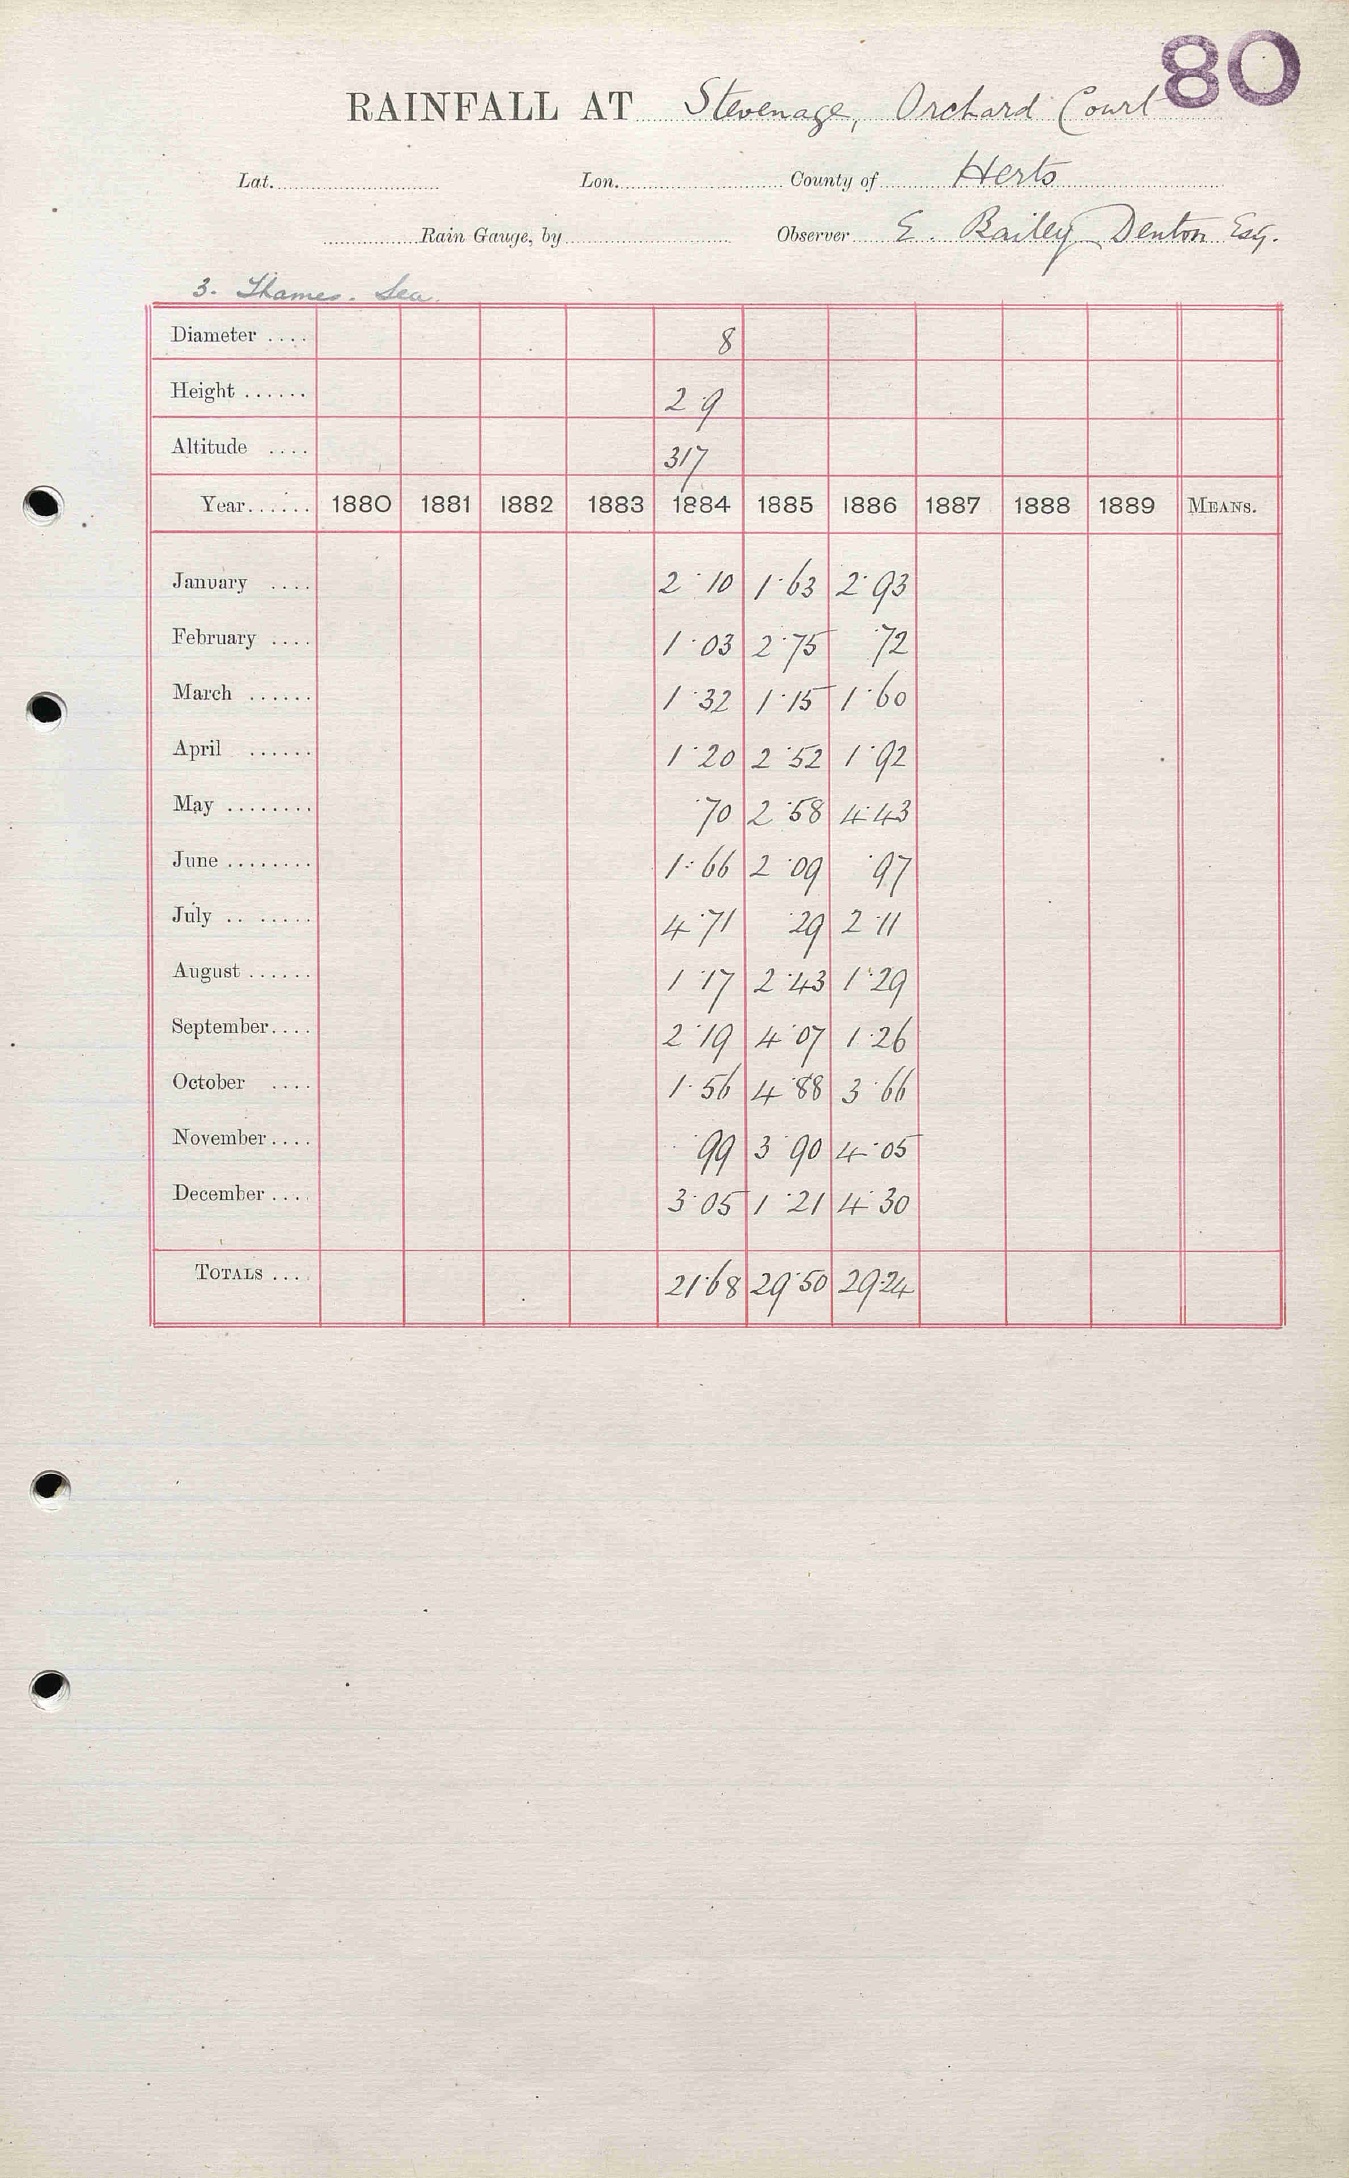 80
RAINFALL AT Stevenage, Orchard Court
Lat. Lon. County of Herts
Rain Gauge, by Observer E. Bailey Denton Esq.
3. Thames. Lea.
Diameter .... 8
Height ...... 2 9
Altitude .... 317
Year...... 1880 1881 1882 1883 1884 1885 1886 1887 1888 1889 MEANS.
January .... 2·10 1·63 2·93
February .... 1·03 2·75 ·72
March ...... 1·32 1·15 1·60
April ...... 1·20 2·52 1·92
May ........ ·70 2·58 4·43
June ........ 1·66 2·09 ·97
July .. ...... 4·71 ·29 2·11
August ...... 1·17 2·43 1·29
September.... 2·19 4·07 1·26
October .... 1·56 4·88 3·66
November.... ·99 3·90 4·05
December.... 3·05 1·21 4·30
TOTALS .... 21·68 29·50 29·24